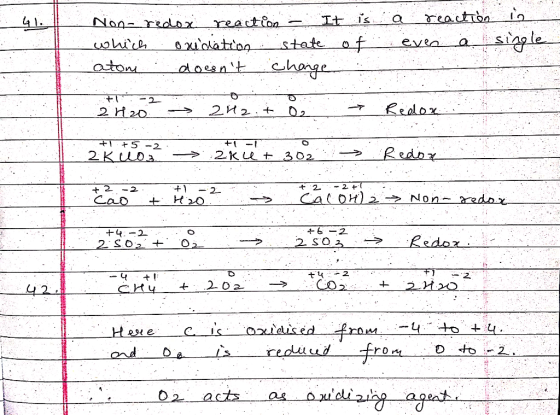 41. Non-redox reaction - It is a reaction in
which oxidation state of even a single
atom doesn't change
+1 -2 0 0
2H2O → 2H2 + O2 → Redox
+1 +5 -2 +1 -1 0
2KClO3 → 2KCl + 3O2 → Redox
+2 -2 +1 -2 +2 -2+1
CaO + H2O → Ca(OH)2 → Non-redox
+4 -2 0 +6 -2
2SO2 + O2 → 2SO3 → Redox.
-4 +1 0 +4 -2 +1 -2
42. CH4 + 2O2 → CO2 + 2H2O
Here C is oxidised from -4 to +4.
and O2 is reduced from 0 to -2.
∴ O2 acts as oxidizing agent.